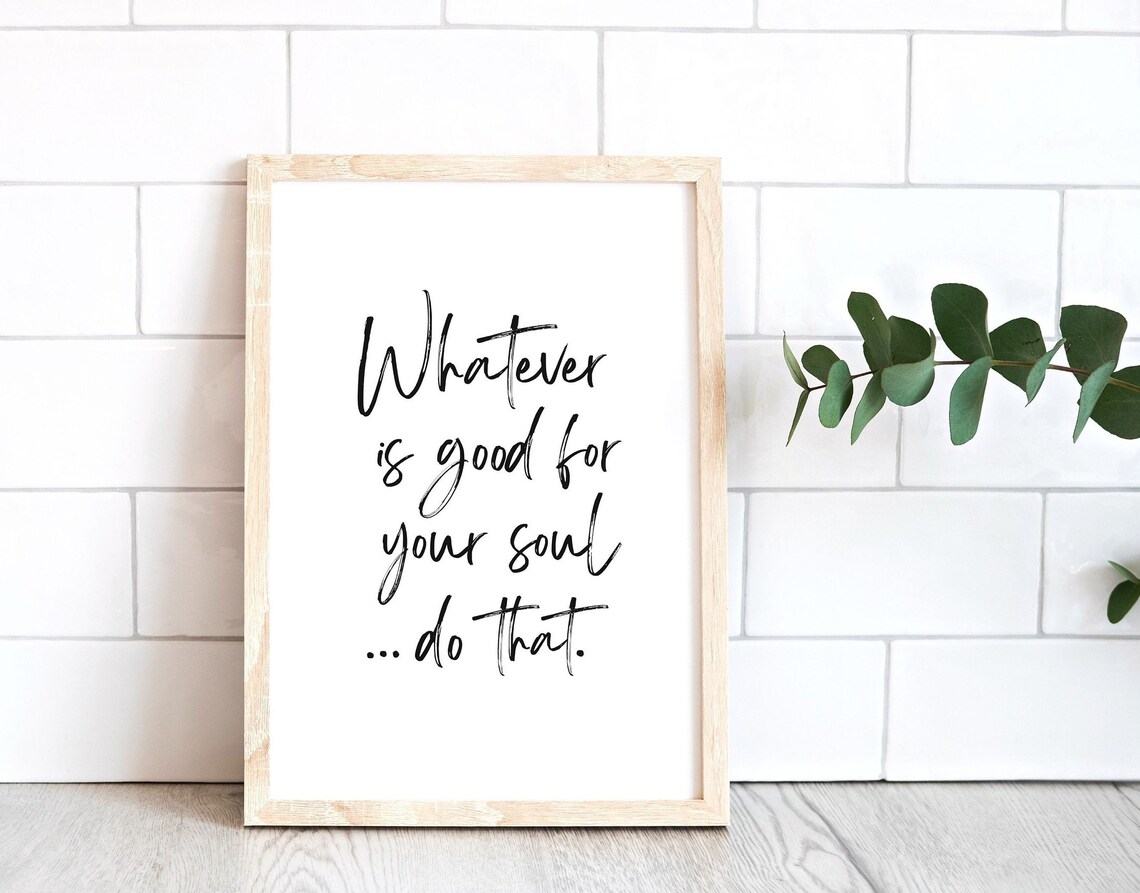 Whatever
is good for
your soul
... do that.